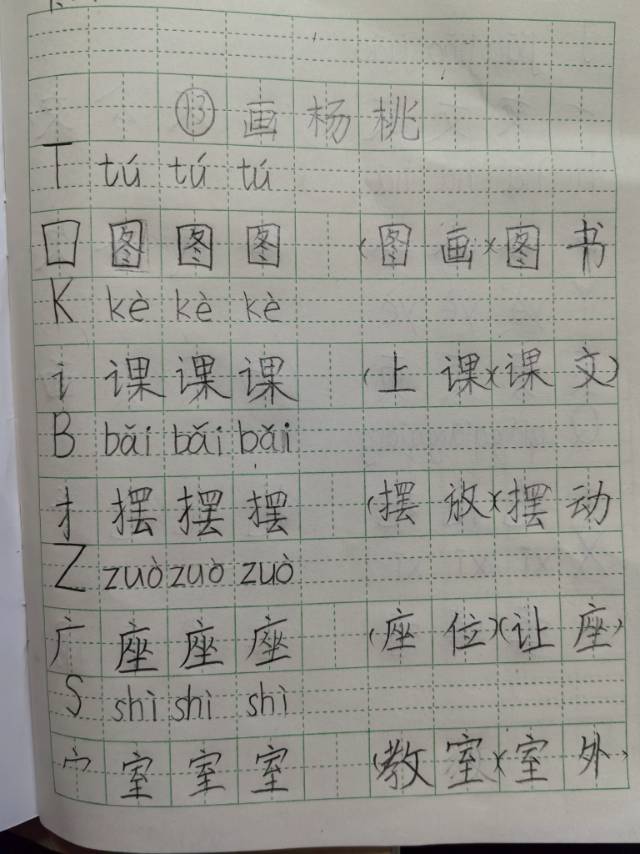 ⑬ 画杨桃
T tú tú tú
囗 图 图 图 (图画)(图书
K kè kè kè
讠 课 课 课 (上课)(课文)
B bǎi bǎi bǎi
扌 摆 摆 摆 (摆放)(摆动
Z zuò zuò zuò
广 座 座 座 (座位)(让座)
S shì shì shì
宀 室 室 室 (教室)(室外)